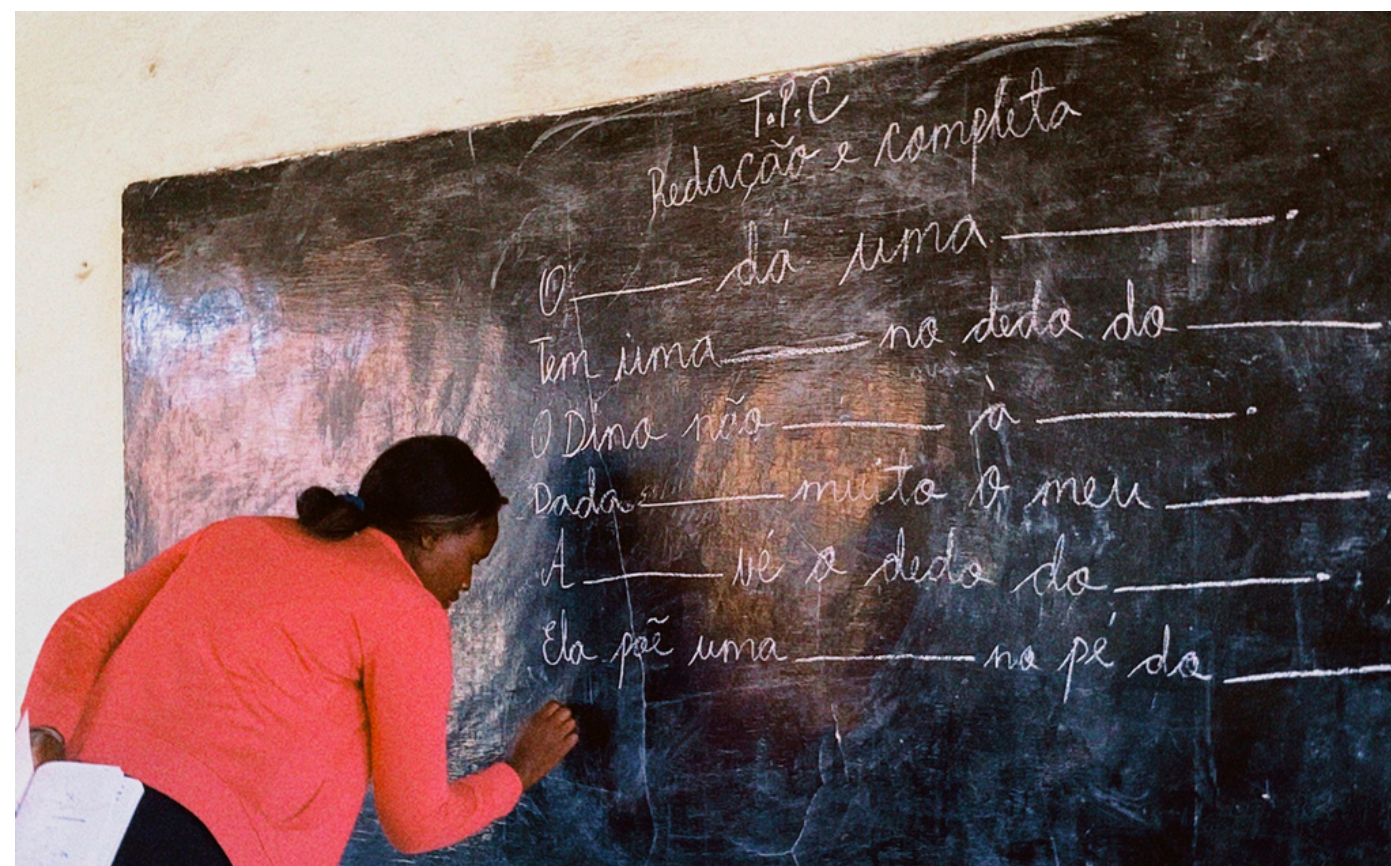 T.P.C
Redação e completa
O ______ dá uma ______.
Tem uma ______ no dedo do ______
O Dino não ______ à ______.
Dada ______ muito o meu ______.
A ______ vé o dedo do ______.
Ela põe uma ______ no pé do ______